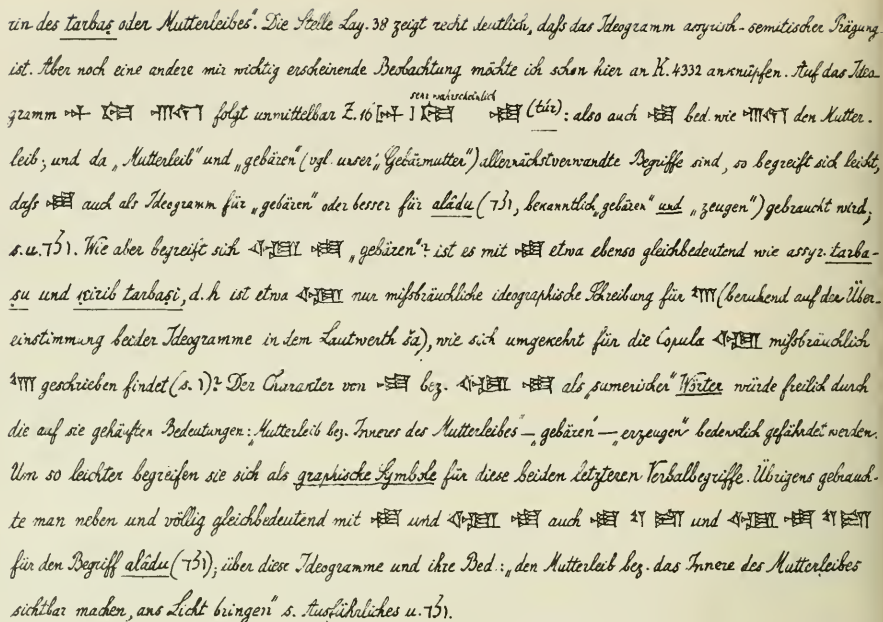 rin des tarbaṣ oder Mutterleibes". Die Stelle Lay. 38 zeigt recht deutlich, daſs das Ideogramm assyrisch-semitischer Prägung
ist. Aber noch eine andere mir wichtig erscheinende Beobachtung möchte ich schon hier an K. 4332 anknüpfen. Auf das Ideo-
gramm folgt unmittelbar Z. 16 [ ] sehr wahrscheinlich (túr): also auch bed. wie den Mutter-
leib; und da „Mutterleib" und „gebären" (vgl. unser „Gebärmutter") allernächstverwandte Begriffe sind, so begreift sich leicht,
daſs auch als Ideogramm für „gebären" oder besser für alâdu (ולד, bekanntlich „gebären" und „zeugen") gebraucht wird;
s. u. ולד. Wie aber begreift sich „gebären"? ist es mit etwa ebenso gleichbedeutend wie assyr. tarba-
ṣu und ḳirib tarbaṣi, d. h ist etwa nur miſsbräuchliche ideographische Schreibung für (beruhend auf der Über-
einstimmung beider Ideogramme in dem Lautwerth ša), wie sich umgekehrt für die Copula miſsbräuchlich
geschrieben findet (s. ו)? Der Charakter von bez. als „sumerischer" Wörter würde freilich durch
die auf sie gehäuften Bedeutungen: „Mutterleib bez. Inneres des Mutterleibes" — „gebären" — „erzeugen" bedenklich gefährdet werden.
Um so leichter begreifen sie sich als graphische Symbole für diese beiden letzteren Verbalbegriffe. Übrigens gebrauch-
te man neben und völlig gleichbedeutend mit und auch und
für den Begriff alâdu (ולד); über diese Ideogramme und ihre Bed.: „den Mutterleib bez. das Innere des Mutterleibes
sichtbar machen, ans Licht bringen" s. Ausführliches u. ולד.